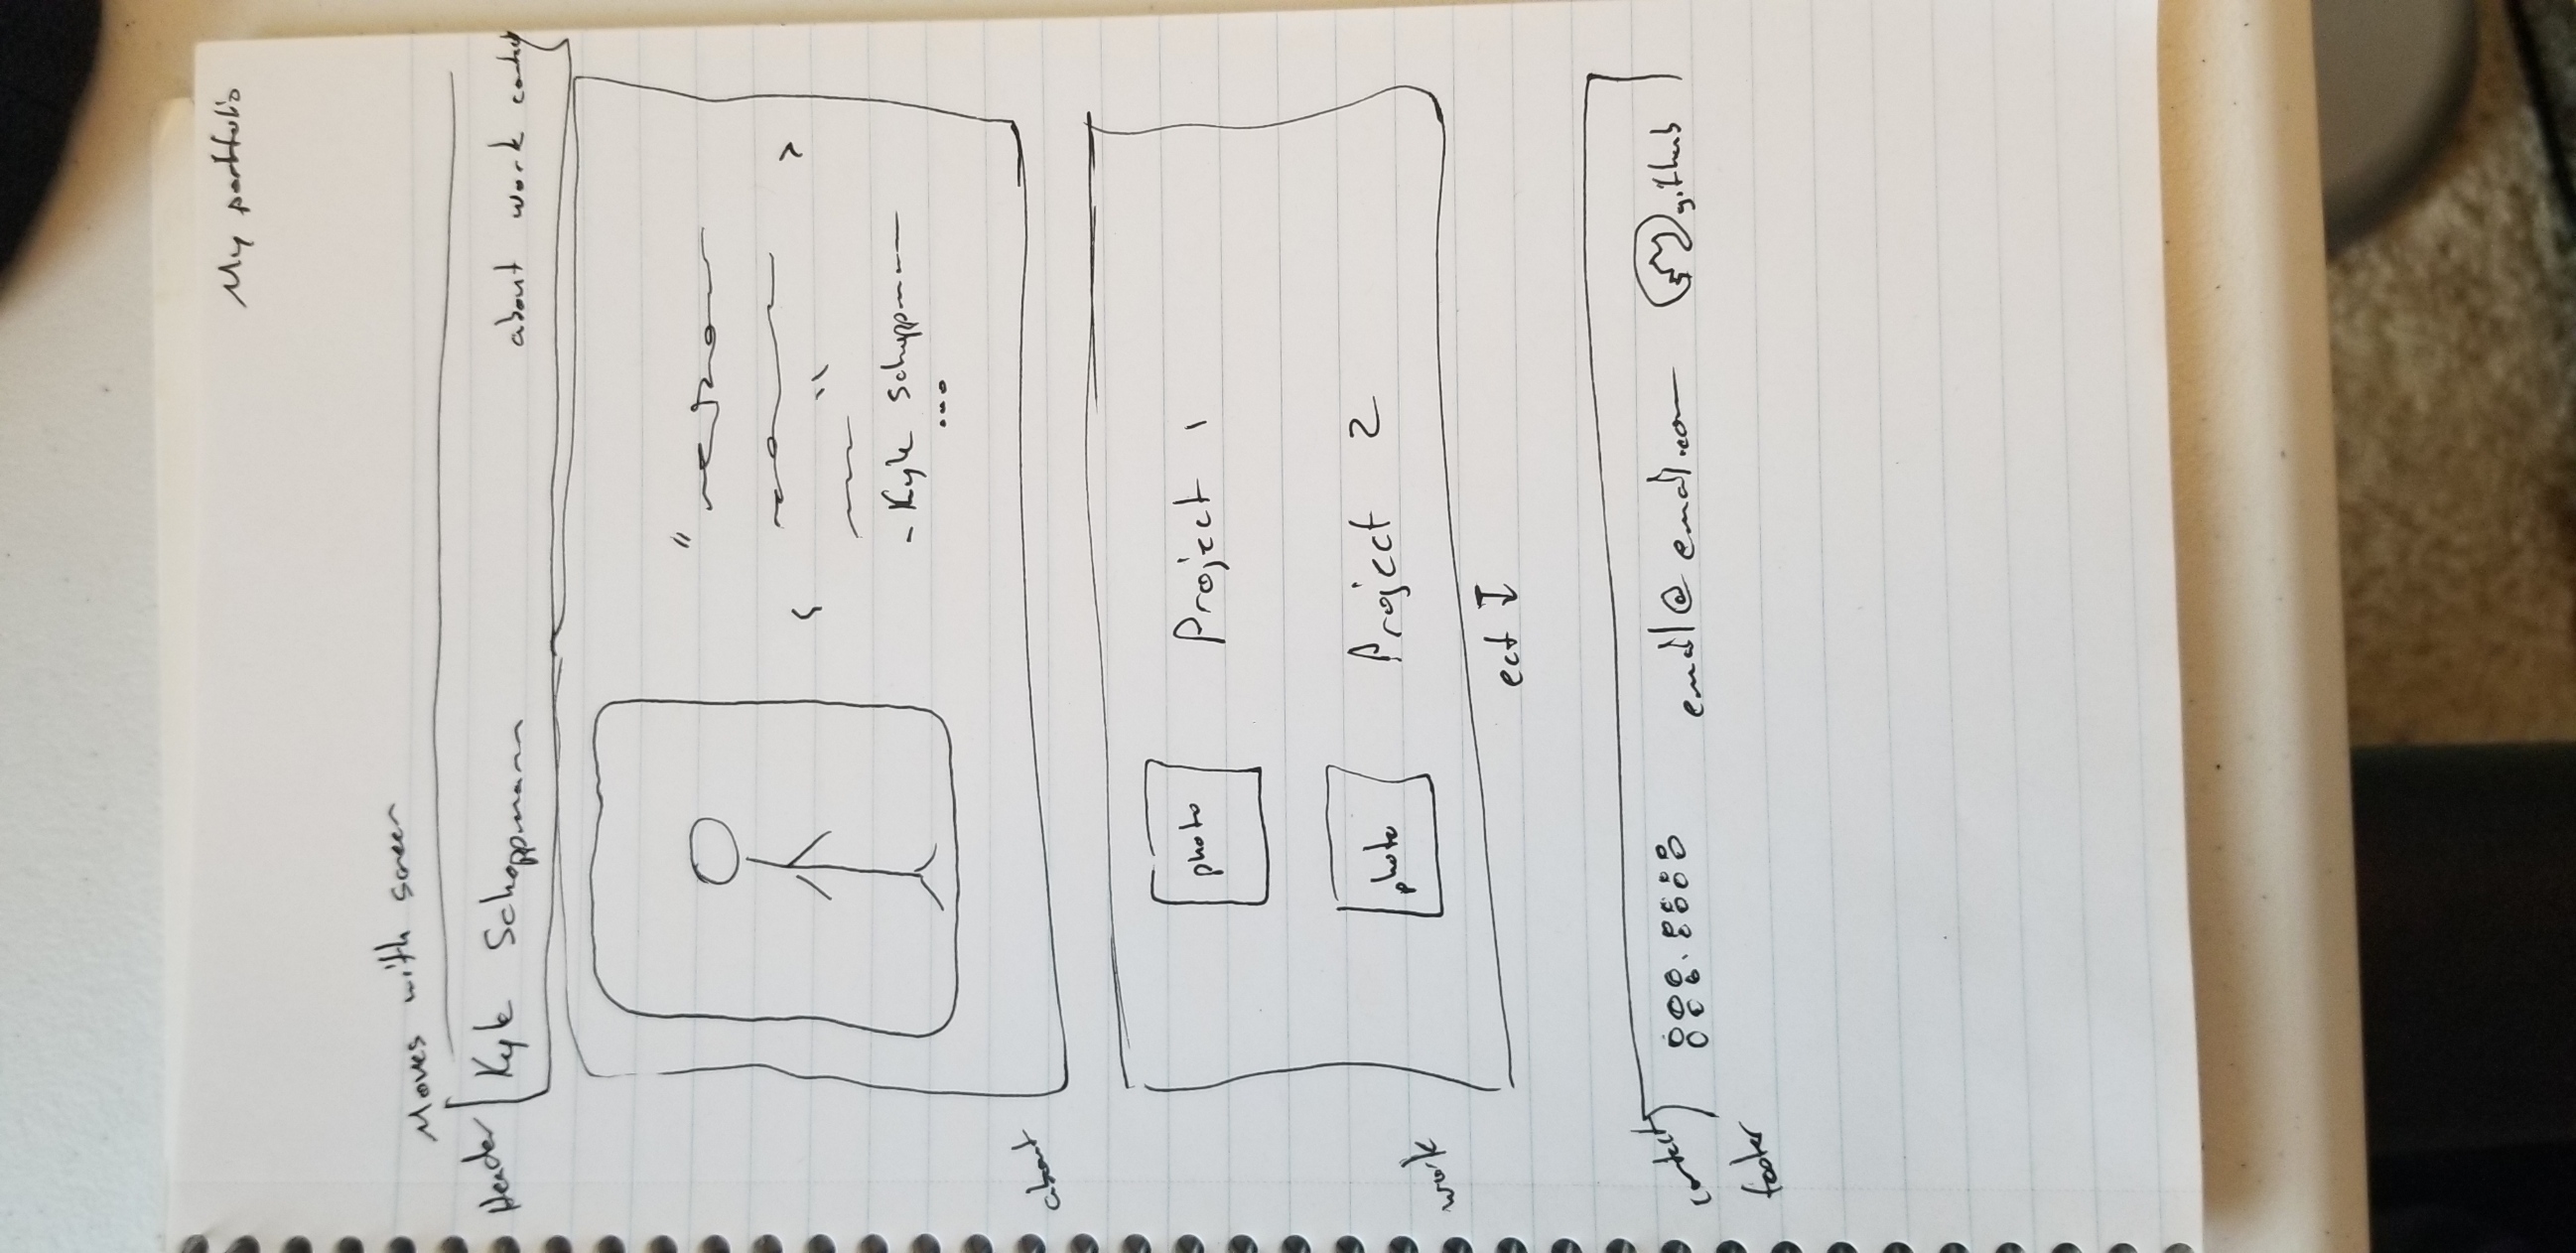 My portfolio
Moves with screen
Header
Kyle Schoppmann
about work contact
"
"
< >
- Kyle Schoppmann
...
about
photo Project 1
photo Project 2
work
ect
contact
888.8888 email@email.com github
footer